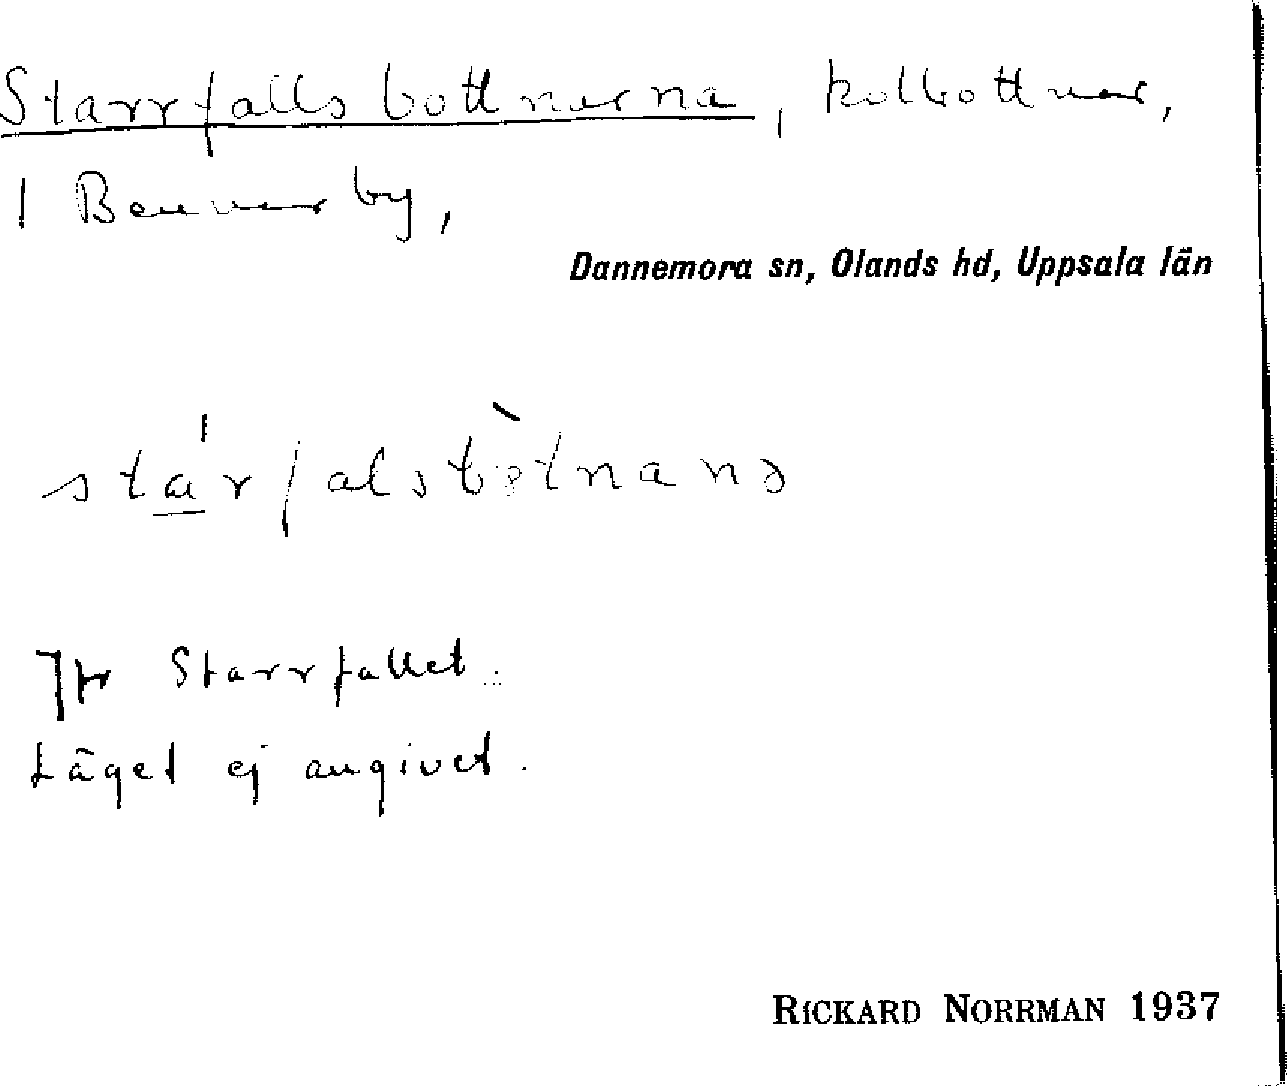 Starrfallsbottnarna, kolbottnar,
i Bennersby,
Dannemora sn, Olands hd, Uppsala län
stárfalsbòtnanə
Jfr Starrfallet.
Läget ej angivet.
RICKARD NORRMAN 1937